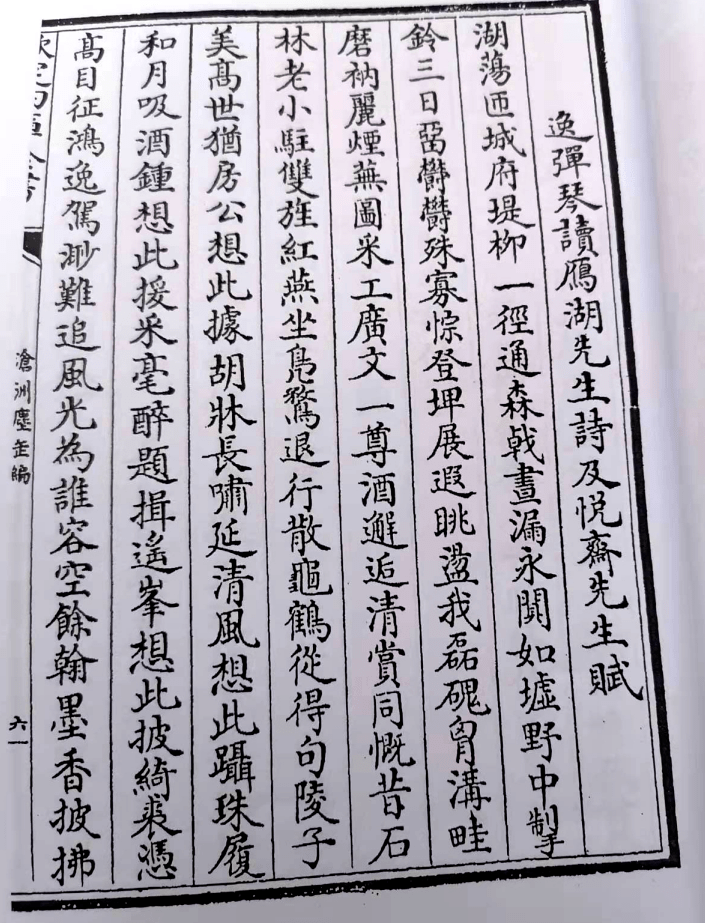 逸彈琴讀鴈湖先生詩及悦齋先生賦
湖蕩匝城府堤柳一徑通森㦸晝漏永闃如墟野中掣
鈴三日畱鬱鬱殊寡悰登埤展遐眺盪我磊磈胷溝畦
磨衲麗煙蕪圖采工廣文一尊酒邂逅清賞同慨昔石
林老小駐雙旌紅燕坐鳧鶩退行散龜鶴從得句陵子
美髙世猶房公想此據胡牀長嘯延清風想此躡珠履
和月吸酒鍾想此援采毫醉題揖遙峯想此披綺裘憑
髙目征鴻逸駕渺難追風光為誰容空餘翰墨香披拂
欽定四庫全書
滄洲塵缶編
六